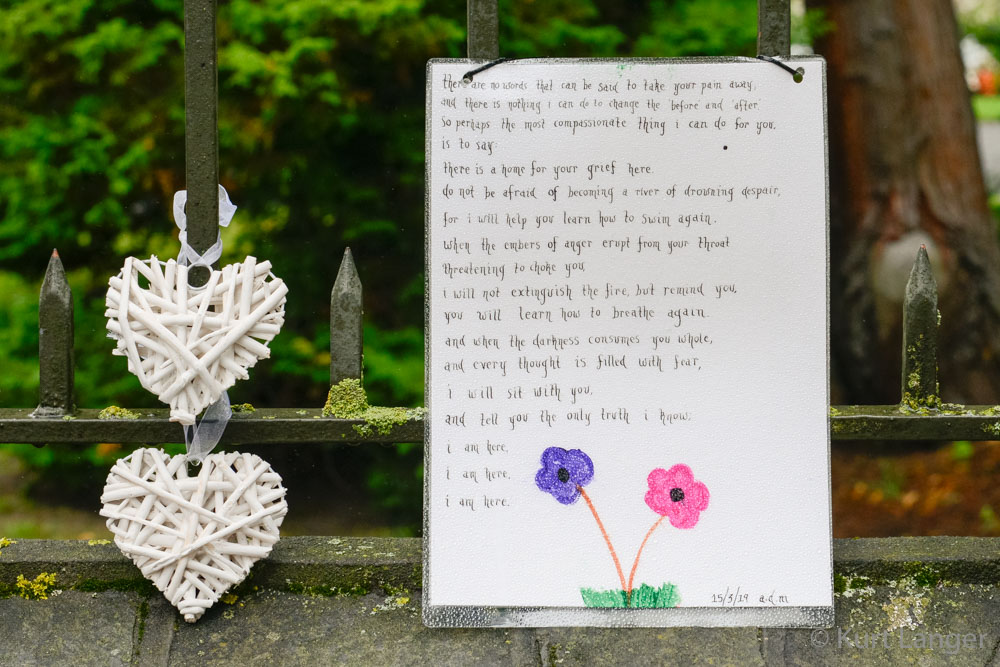 there are no words that can be said to take your pain away,
and there is nothing i can do to change the 'before' and 'after'.
So perhaps the most compassionate thing i can do for you,
is to say:
there is a home for your grief here.
do not be afraid of becoming a river of drowning despair,
for i will help you learn how to swim again.
when the embers of anger erupt from your throat
threatening to choke you,
i will not extinguish the fire, but remind you,
you will learn how to breathe again.
and when the darkness consumes you whole,
and every thought is filled with fear,
i will sit with you,
and tell you the only truth i know:
i am here.
i am here.
i am here.
15/3/19 a.d.m
© Kurt Langer